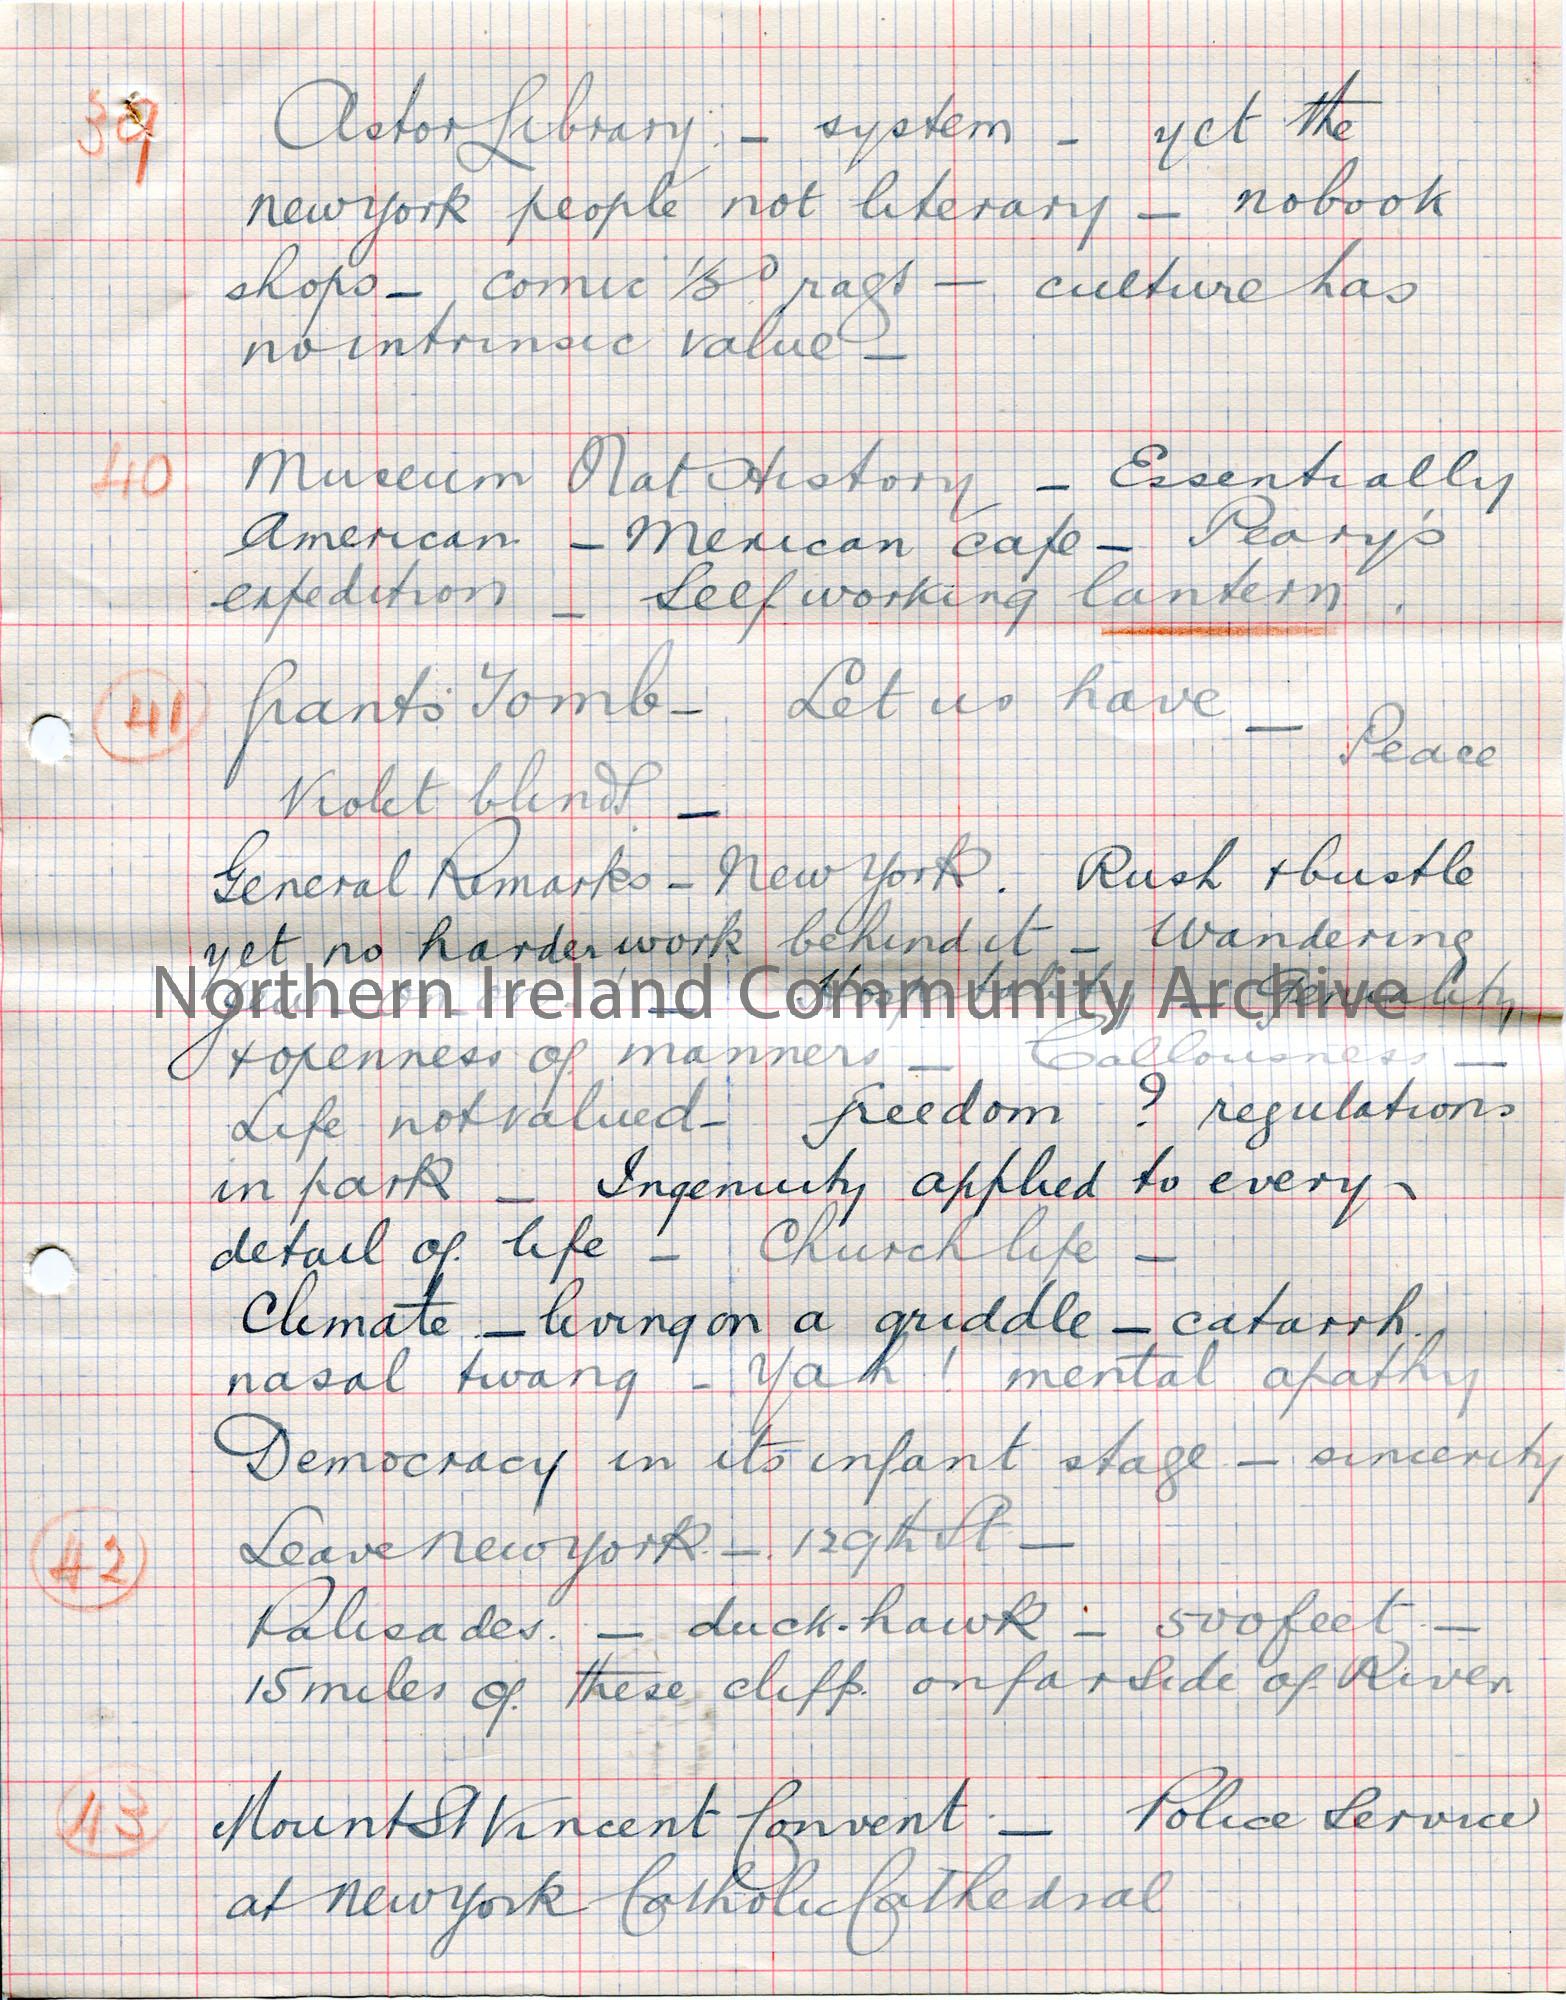 39 Astor Library - system - yet the
new york people not literary - no book
shops - comic rags - culture has
no intrinsic value -
40 Museum Nat History - Essentially
American - Mexican cafe - Peary's
expedition - Self working lantern.
41 Grants Tomb - Let us have -
Peace
Violet blinds -
General Remarks - New York. Rush + bustle
yet no harder work behind it - Wandering
Jew - Hospitality - Geniality
Northern Ireland Community Archive
+ openness of manners - Callousness -
Life not valued - freedom ? regulations
in park - Ingenuity applied to every
detail of life - Church life -
Climate - living on a griddle - catarrh.
nasal twang - Yah ! mental apathy
Democracy in its infant stage - sincerity
42 Leave New York - 129th St -
Palisades. - duck-hawk - 500 feet -
15 miles of these cliffs on far side of River
43 Mount St Vincent Convent - Police Service
at New York Catholic Cathedral